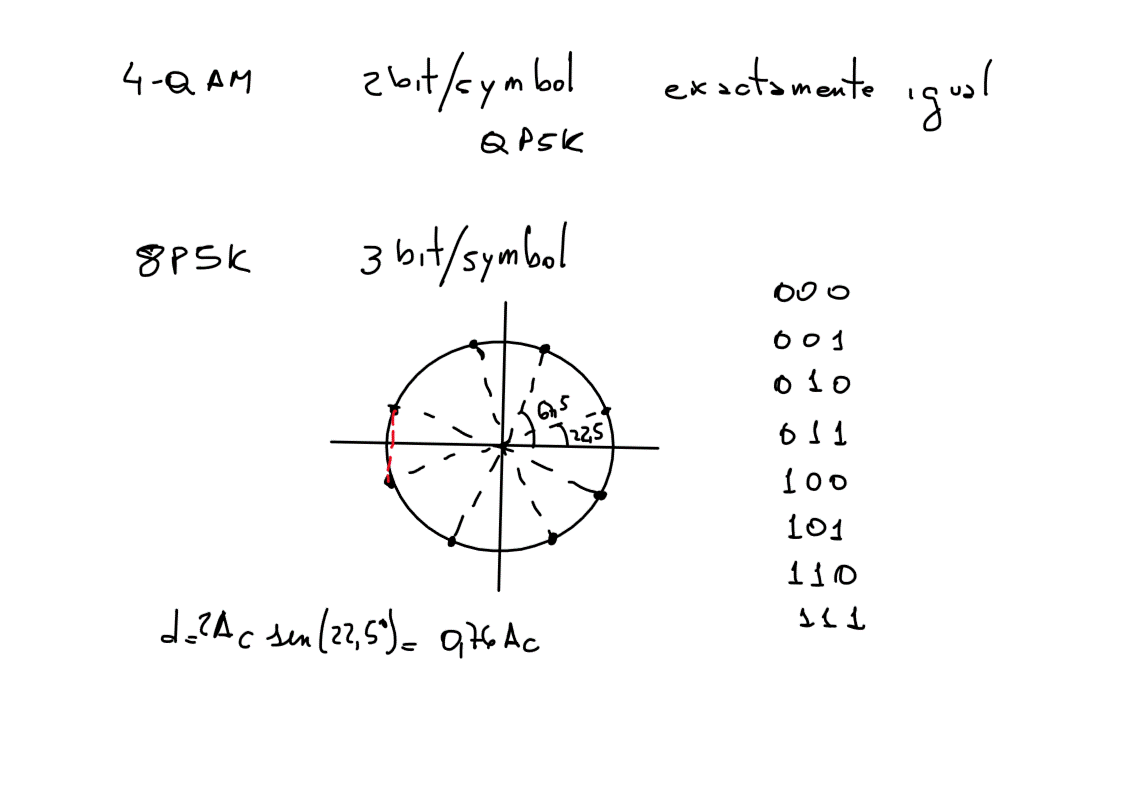 4-QAM 2bit/symbol exactamente igual
QPSK
8PSK 3 bit/symbol
000
001
010
011
100
101
110
111
67,5
22,5
d=2Ac sen(22,5°)= 0,76 Ac